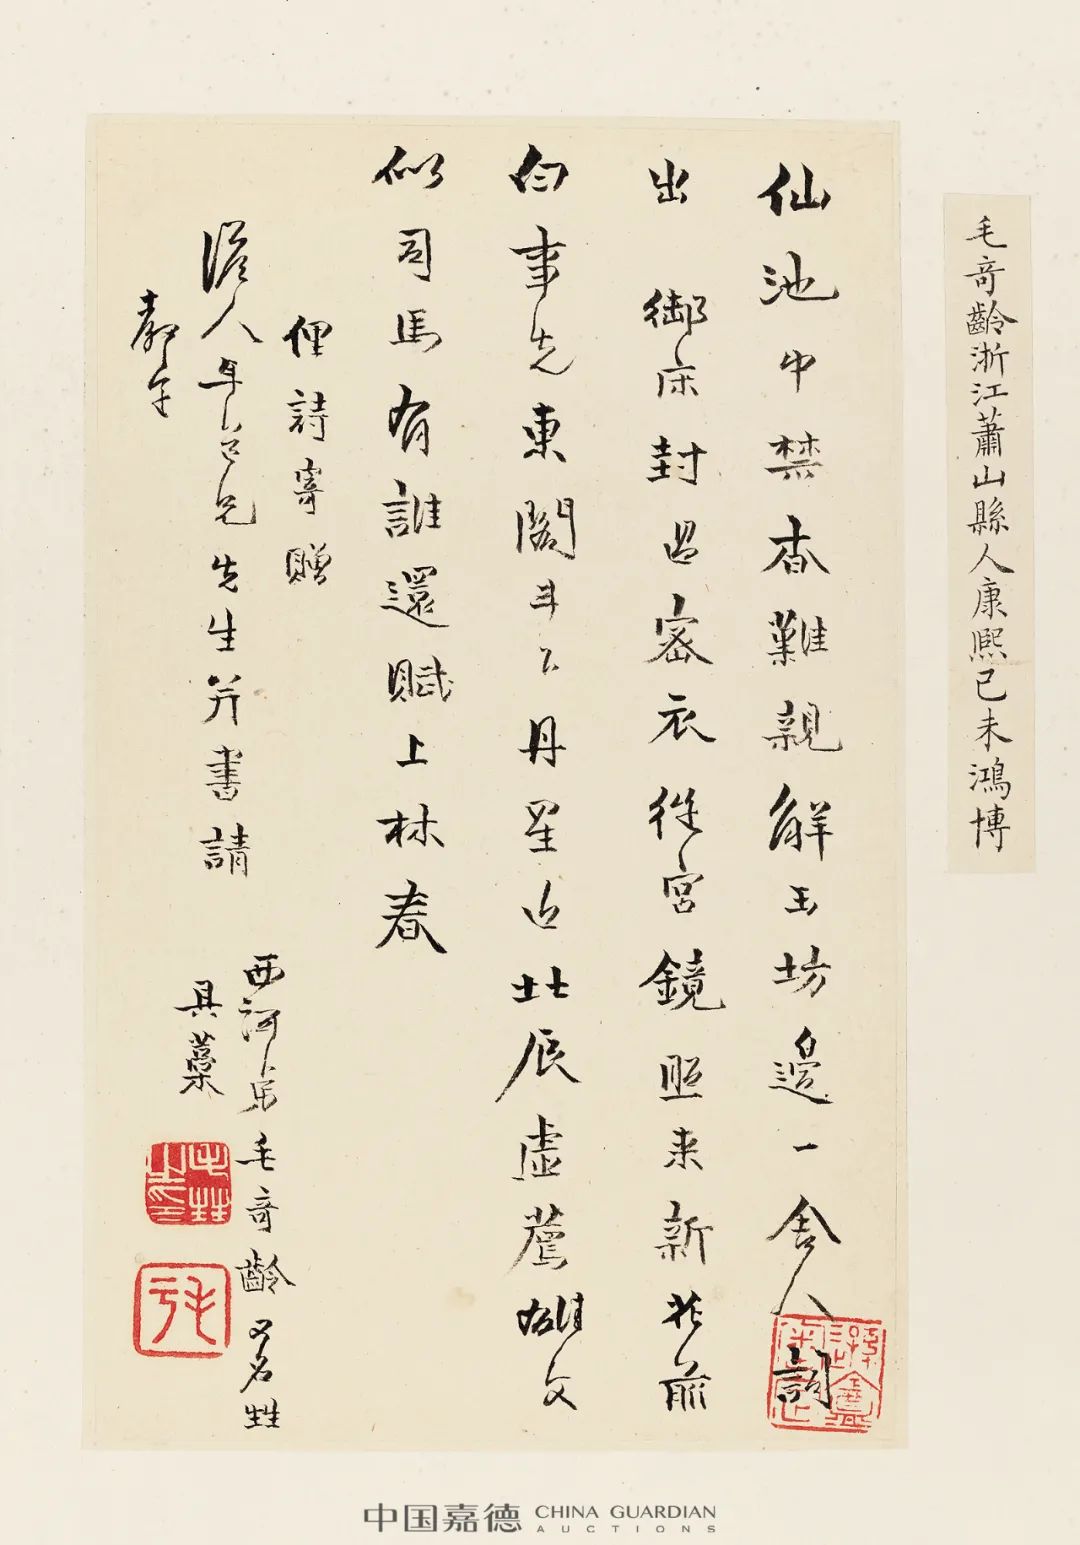 毛奇齡浙江蕭山縣人康熙己未鴻博
仙池中禁杳難親解玉坊邊一舍人詞
出御床封過密衣從宮鏡照來新花前
白事先東閣斗下丹星近北辰虛薦雄文
似司馬有誰還賦上林春
俚詩寄贈
澹人年台兄先生并書請
教
西河弟毛奇齡又名甡
具藁
中国嘉德 CHINA GUARDIAN
AUCTIONS